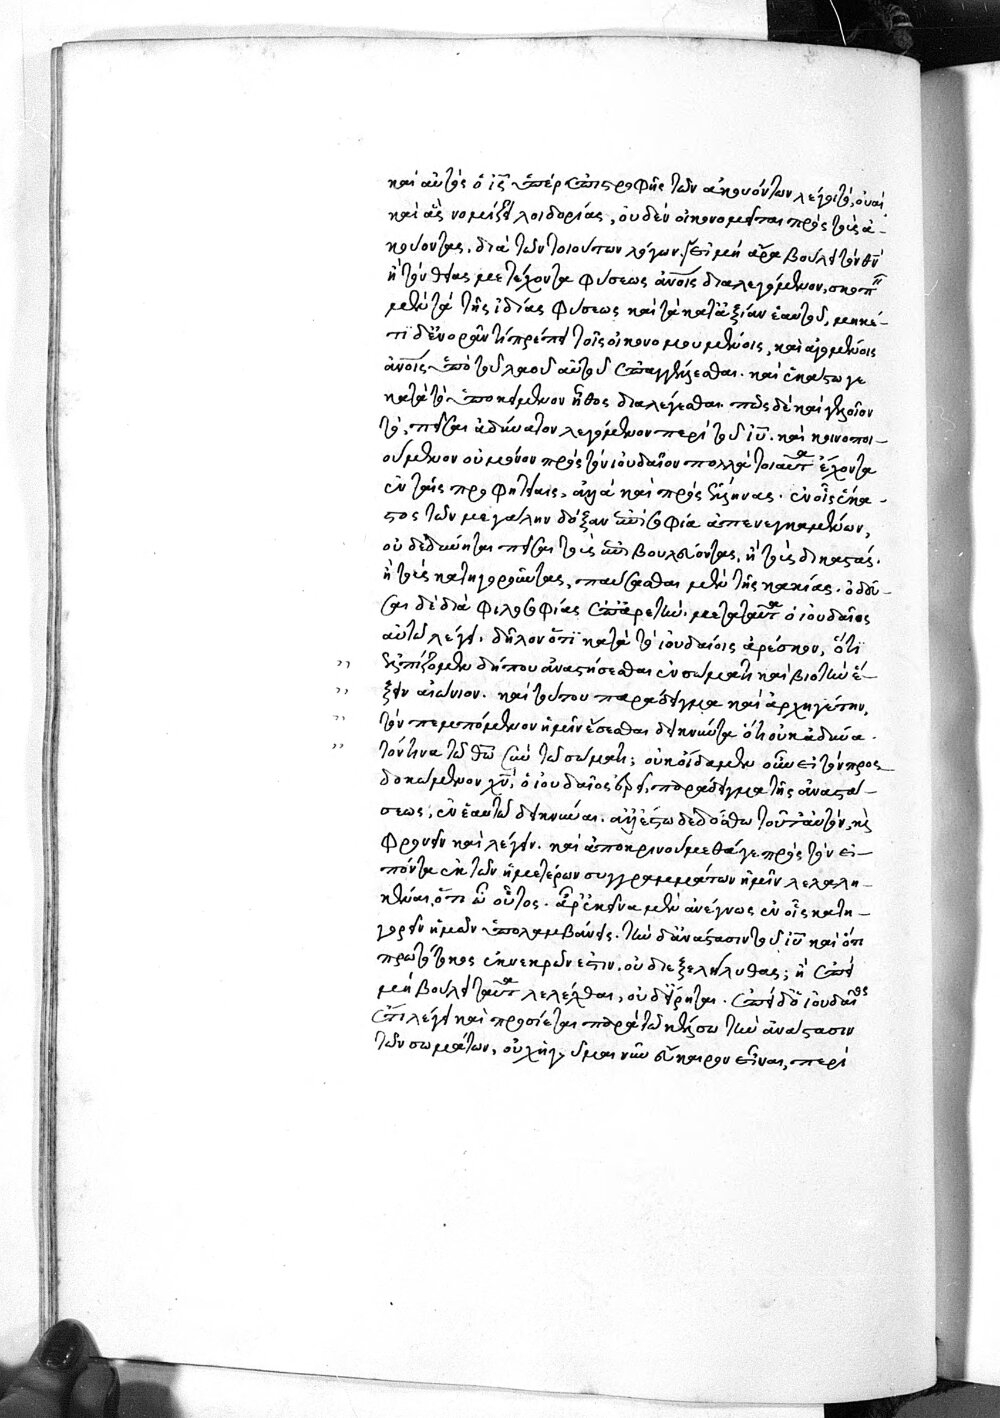 καὶ αὐτὸς ὁ ἰς̅ ὑπὲρ ἐπιστροφῆς τῶν ἀκουόντων λέγει τὸ, οὐαὶ
καὶ ἃς νομίζει λοιδορίας, οὐδὲν οἰκονομεῖται πρὸς τοὺς ἀ-
κούοντας. διὰ τῶν τοιούτων λόγων. εἰ μὴ ἄρα βούλει τὸν θν̅
ἢ τὸν θείας μετέχοντα φύσεως ἀν̅οις διαλεγόμενον, σκοπεῖν
μὲν τὰ τῆς ἰδίας φύσεως καὶ τὰ κατ' ἀξίαν ἑαυτοῦ, μηκέ-
τι δὲ ἐνορᾶν τί πρέπει τοῖς οἰκονομουμένοις, καὶ ἀγομένοις
ἀν̅οις ὑπὸ τοῦ λόγου αὐτοῦ ἐπαγγέλλεσθαι. καὶ ἑκάστω γε
κατὰ τὸ ὑποκείμενον ἦθος διαλέγεσθαι. πῶς δὲ καὶ γελοῖον
τὸ, πεῖσαι ἀδύνατον λεγόμενον περὶ τοῦ ἰυ̅. καὶ κοινοποι-
ούμενον οὐ μόνον πρὸς τὸν ἰουδαῖον πολλὰ τοιαῦτα ἔχοντα
ἐν ταῖς προφητείαις, ἀλλὰ καὶ πρὸς ἕλληνας. ἐν οἷς ἕκα-
στος τῶν μεγάλην δόξαν ἐπὶ σοφία ἀπενεγκαμένων,
οὐ δεδύνηται πεῖσαι τοὺς ἐπιβουλεύοντας, ἢ τοὺς δικαστάς.
ἢ τοὺς κατηγοροῦντας, παύσασθαι μὲν τῆς κακίας. ὁδεῦ-
σαι δὲ διὰ φιλοσοφίας ἐπ' ἀρετήν. μετὰ ταῦτα ὁ ἰουδαῖος
αὐτῶ λέγει. δῆλον ὅτι κατὰ τὸ ἰουδαίοις ἀρέσκον, ὅτι
ἐλπίζομέν δήπου ἀναστήσεσθαι ἐν σώματι καὶ βιοτὴν ἕ-
ξειν αἰώνιον. καὶ τούτου παράδειγμα καὶ ἀρχηγέτην,
τὸν πεμπόμενον ἡμῖν ἔσεσθαι δεικνύντα ὅτι οὐκ ἀδύνα-
τόν τινα τῶ θω̅ σὺν τῶ σώματι; οὐκ οἴδαμεν οὖν εἰ τὸν προς
δοκώμενον χν̅, ὁ ἰουδαῖος ἐρεῖ, παράδειγμα τῆς ἀναστά-
σεως, ἐν ἑαυτῶ δεικνύναι. ἀλλ' ἔστω δεδόσθω τοῦτ' αὐτὸν, καὶ
φρονεῖν καὶ λέγειν. καὶ ἀποκρινούμεθά γε πρὸς τὸν εἰ-
πόντα ἐκ τῶν ἡμετέρων συγγραμμάτων ἡμῖν λελαλη-
κέναι, ὅτι ὦ οὗτος. ἆρ' ἐκεῖνα μὲν ἀνέγνως ἐν οἷς κατη-
γορεῖν ἡμῶν ὑπολαμβάνεις. τὴν δ' ἀνάστασιν τοῦ ἰυ̅ καὶ ὅτι
πρωτότοκος ἐκ νεκρῶν ἐστιν. οὐ διεξελήλυθας; ἢ ἐπεὶ
μὴ βούλει ταῦτα λελέχθαι, οὐδ' εἴρηται. ἐπεὶ δὲ ὁ ἰουδαῖος
ἔτι λέγει καὶ προσίεται παρὰ τῶ κέλσω τὴν ἀνάστασιν
τῶν σωμάτων, οὐχ ἡγοῦμαι νῦν εὔκαιρον εἶναι, περὶ